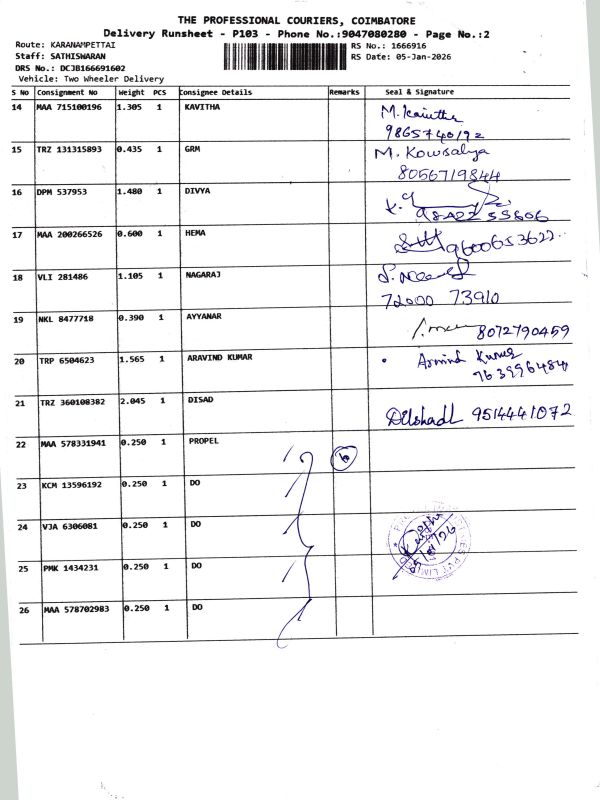 THE PROFESSIONAL COURIERS, COIMBATORE
Delivery Runsheet - P103 - Phone No.:9047080280 - Page No.:2
Route: KARANAMPETTAI RS No.: 1666916
Staff: SATHISHARAN RS Date: 05-Jan-2026
DRS No.: DCJB166691602
Vehicle: Two Wheeler Delivery
S No Consignment No Weight PCS Consignee Details Remarks Seal & Signature
14 MAA 715100196 1.305 1 KAVITHA M. Kavitha
9865740192
15 TRZ 131315893 0.435 1 GRM M. Kowsalya
8056719844
16 DPM 537953 1.480 1 DIVYA
17 MAA 200266526 0.600 1 HEMA 9600653622
18 VLI 281486 1.105 1 NAGARAJ
72000 73910
19 NKL 8477718 0.390 1 AYYANAR 8072790459
20 TRP 6504623 1.565 1 ARAVIND KUMAR Arvind Kumar
21 TRZ 360108382 2.045 1 DISAD Dilshad 9514441072
22 MAA 578331941 0.250 1 PROPEL
23 KCM 13596192 0.250 1 DO
24 VJA 6306081 0.250 1 DO
25 PMK 1434231 0.250 1 DO
26 MAA 578702983 0.250 1 DO